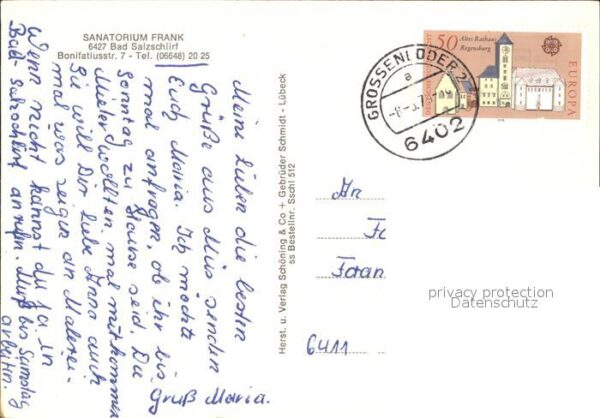 SANATORIUM FRANK
6427 Bad Salzschlirf
Bonifatiusstr. 7 - Tel. (06648) 20 25
Meine Lieben die besten
Grüße aus Müs senden
Euch Maria. Ich möchte
mal anfragen, ob ihr bis
Sonntag zu Hause seid. Die
Mieter wollten mal mitkommen
Sie will Dir liebe Anna auch
mal was zeigen an Malerei.
Wenn nicht kannst du ja in
Bad-Salzschlirf anrufen. Muß bis Samstag
arbeiten.
Gruß Maria.
Herst. u. Verlag Schöning & Co + Gebrüder Schmidt · Lübeck
ss Bestellnr. Sschl 512
GROSSENLÜDER 2
a
6402
50
Altes Rathaus
Regensburg
EUROPA
CEPT
An
F
6411
privacy protection
Datenschutz